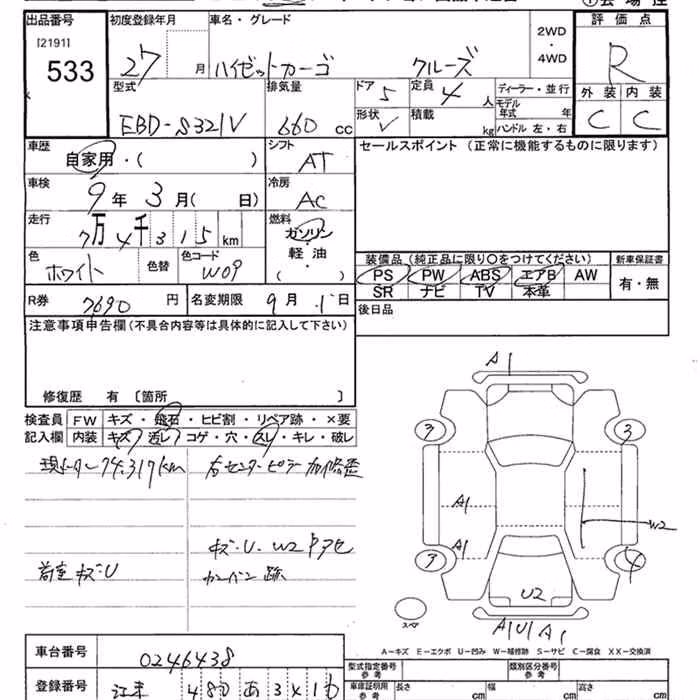 出品番号 初度登録年月 車名・グレード 2WD・4WD 評価点
[2191]
533 27 月 ハイゼットカーゴ クルーズ R
型式 排気量 ドア 5 定員 4 人 ディーラー・並行 外装 内装
EBD-S321V 660 cc 形状 V 積載 kg モデル年式 年 ハンドル 左・右 C C
車歴 自家用・( ) シフト AT セールスポイント (正常に機能するものに限ります)
車検 9年3月( 日) 冷房 AC
走行 7万4千315km 燃料 ガソリン・軽油・( )
色 ホワイト 色替 色コード W09
装備品 (純正品に限り○をつけてください) 新車保証書
PS PW ABS エアB AW 有・無
SR ナビ TV 本革
R券 7690 円 名変期限 9月 日 後日品
注意事項申告欄(不具合内容等は具体的に記入して下さい)
修復歴 有 〔箇所 〕
検査員 FW キズ・飛石・ヒビ割・リペア跡・×要
記入欄 内装 キズ・汚レ・コゲ・穴・スレ・キレ・破レ
現メーター74,317km 右センターピラー
キズ・U・W2
荷室 キズ・U カンバン跡
A1
3 3
A1
A1 W2
3 4
U2
スペア A1 U1 A1
A-キズ E-エクボ U-凹み W-補修跡 S-サビ C-腐食 XX-交換済
車台番号 0246438
登録番号 480 あ 3416
型式指定番号 参考 類別区分番号 参考
車庫証明用 参考 長さ cm 幅 cm 高さ cm